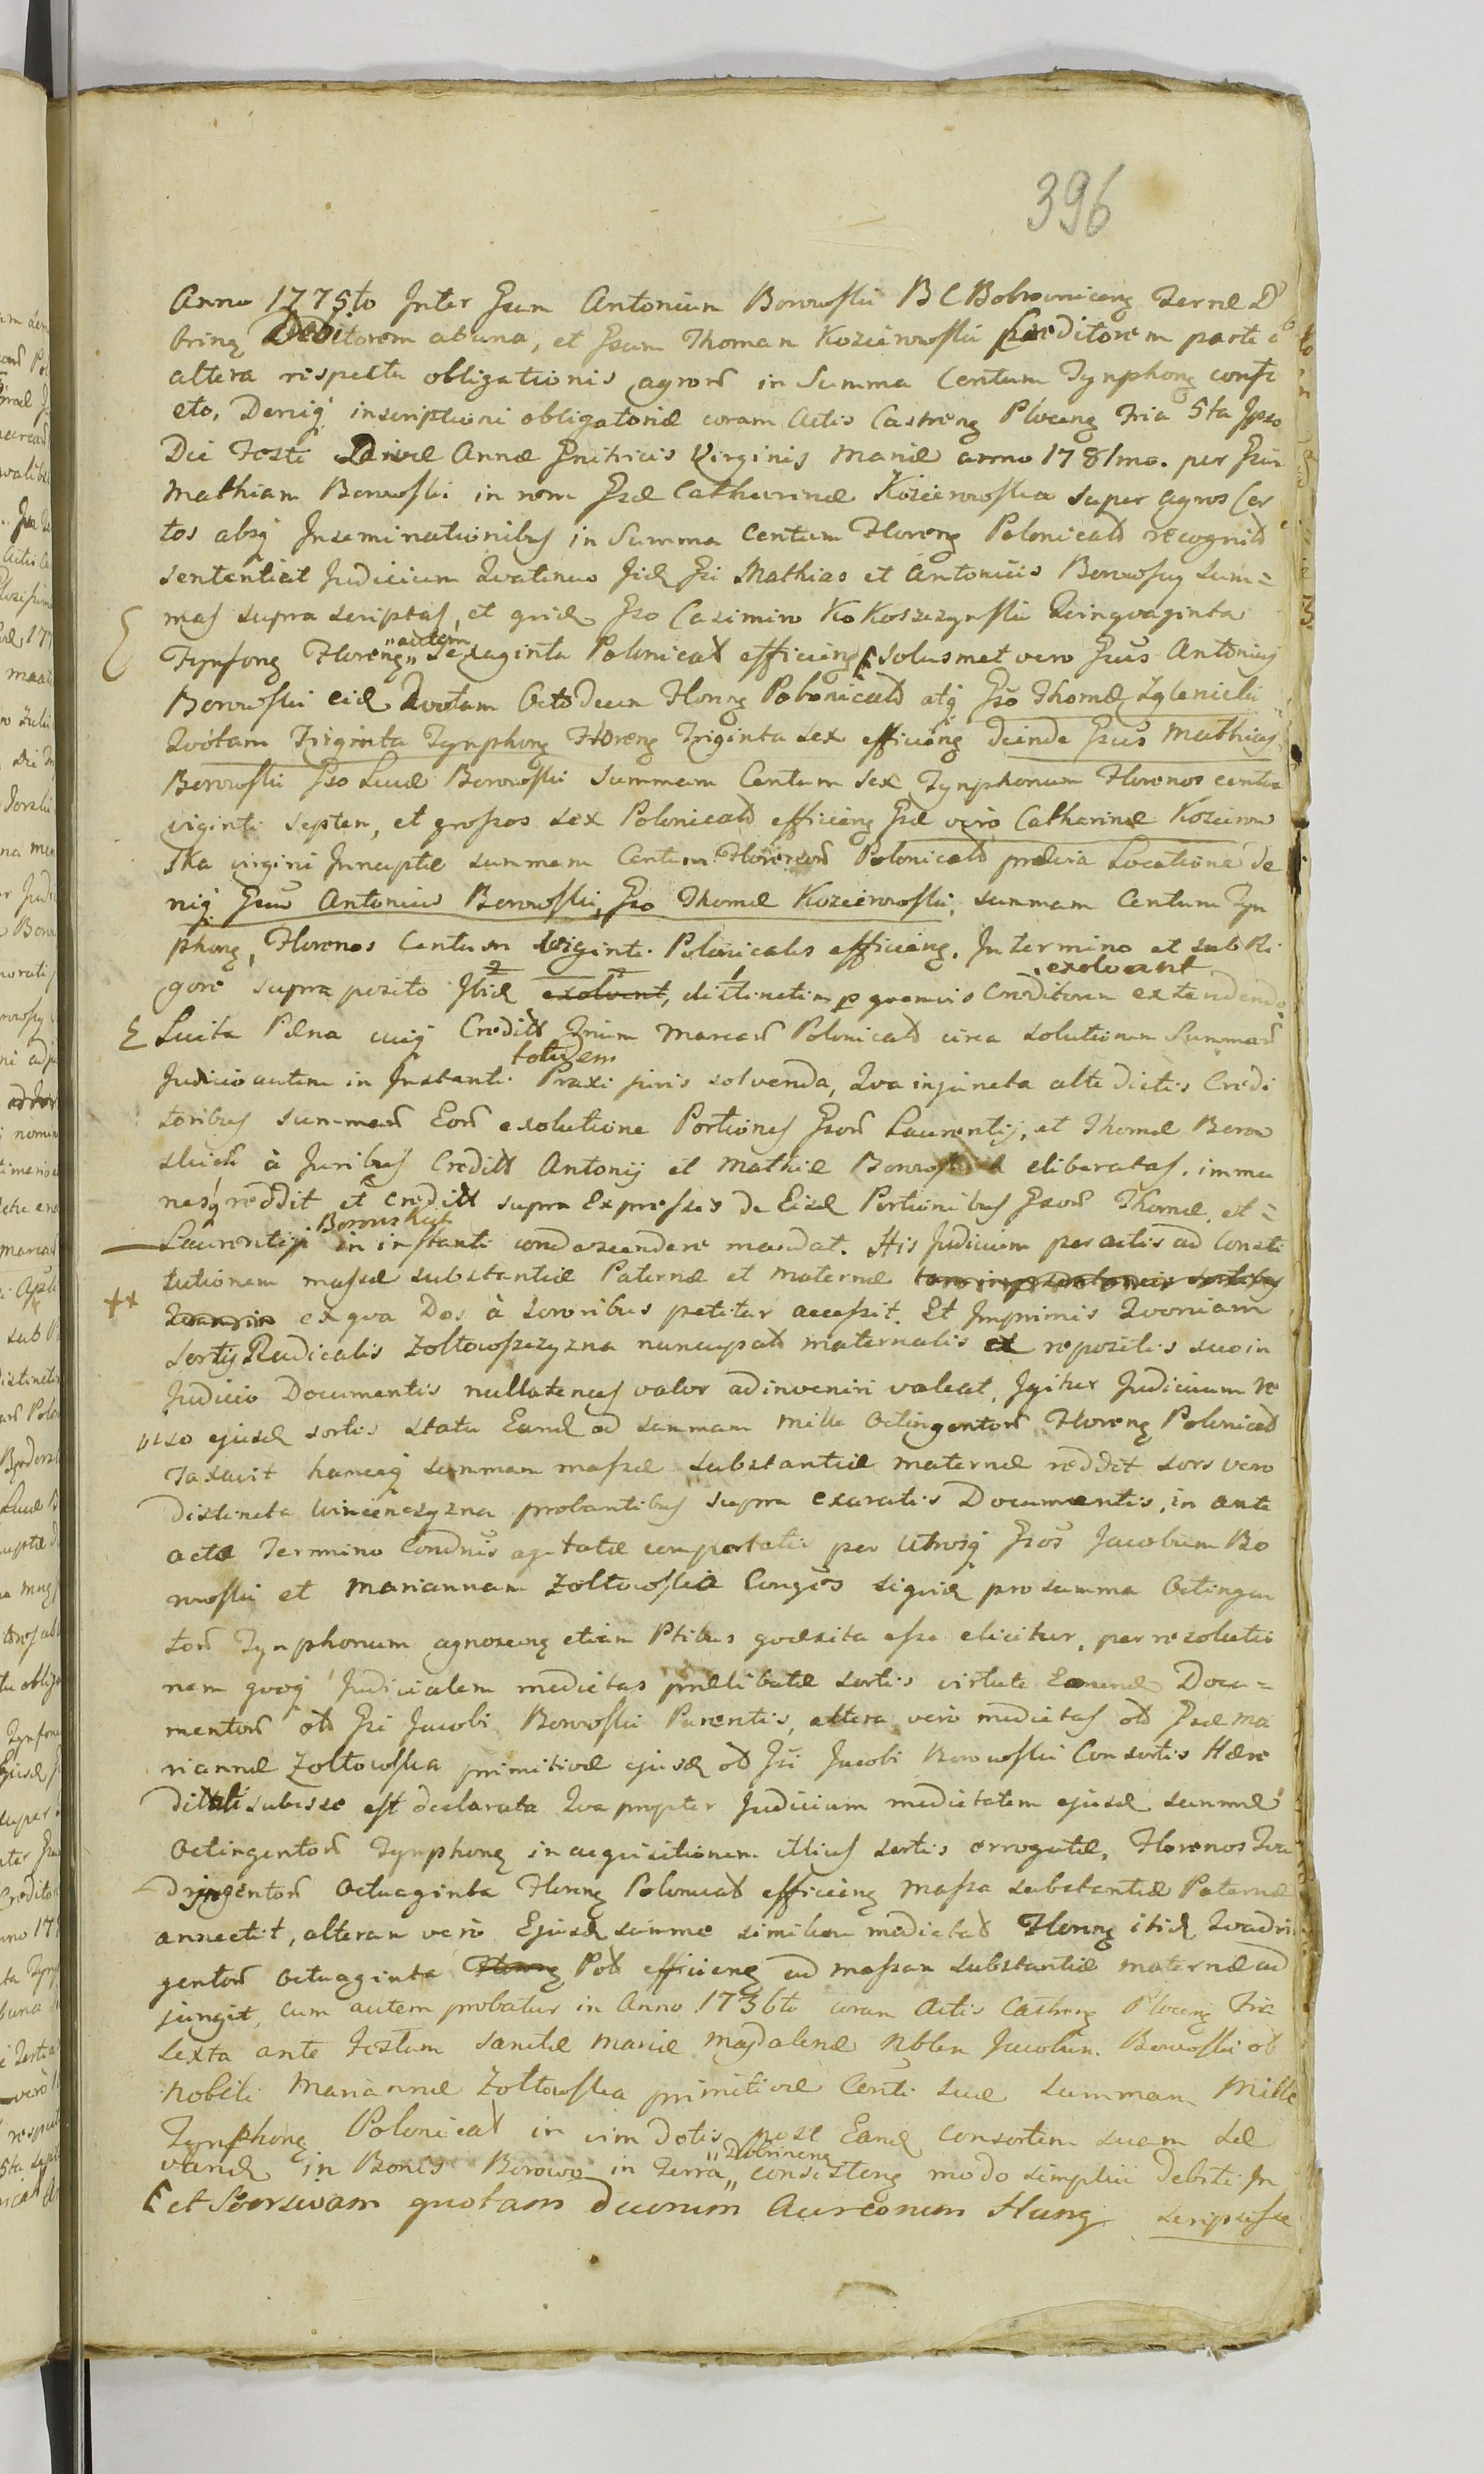 396
Anno 1775to Inter Gsum Antonium Borowski B C Bobrovniceng Terræ D
bring Debitorem ab una, et Gsum Thoman Kozierowski Creditorem parte
altera respectu obligationis agror in Summa Centum Tynphong confe
cto, Deniq inscriptioni obligatoriæ coram Actis Castreng Ploceng Fria 5ta Ipso
Die Festi Divæ Annæ Gnitricis Virginis Mariæ anno 1781mo. per Gsum
Mathiam Borowski in rem Gsæ Catharinæ Kozierowska super agros Cer
tos absq Inseminationibus in Summa Centum Floreng Polonicald recognit
sententiat Judicium Qvatenus Iid Gsi Mathias et Antonius Borowscy Sum=
mas supra scriptas, et quid Gso Casimiro Kokoszczynski Qvinqvaginta
Tynfong Floreng "autem" Sexaginta Polonical efficieng solusmet vero Gsus Antonius
Borowski eid Qvotam Octodecim Floreng Polonicald atq Gso Thomæ Zglenicki
Qvotam Triginta Tynphong Floreng Triginta sex efficieng deinde Gsus Mathias
Borowski Gso Lucæ Borowski summam Centum sex Tynphonum Florenos centum
viginti septem, et grossos sex Polonicald efficieng Gsæ vero Catharinæ Kozierow
ska virgini Innuptæ summam Centum Florenor Polonicald prævia Locatione de
niq Gsus Antonius Borowski, Gso Thomæ Kozierowski, summam Centum Tyn
phong, Florenos Centum viginti Polonicales efficieng. In termino et sub Ri
gore supra posito Ibid exolvant, distinctim p quemvis Creditorem extendendo exolvant
Luita Pæna cuiq Credit Trium Marcar Polonicald circa solutionem Summar
Judicio autem in Instanti totidem Praxi juris solvenda, Qva injuncta alte dictis Credi
toribus summar Eor exolutione Portiones Gsor Laurentij, et Thomæ Borow
skich à Juribus Credit Antonij et Mathiæ Borowski eliberatas, immu
nesq reddit et Credit supra Expressis de Eisd Portionibus Gsor Thomæ, et=
Laurentij Borowskich in instanti condescendere mandat. His Judicium peractis ad Consti
tutionem massæ substantiæ Paternæ et maternæ
ex qva Dos à Sororibus petitur accessit. Et Imprimis Qvoniam
Sortis Radicalis Zoltowszczyzna nuncupat maternalis ex repositis suo in
Judicio Documentis nullatenus valor adinveniri valeat, Igitur Judicium re
viso ejusd sortis statu Eand ad summam mille Octingentor Floreng Polonicald
Taxavit hancq summam massæ substantiæ maternæ reddit sors vero
distincta Wincenczyzna probantibus supra exaratis Documentis, in ante
acto Termino Condnis agitatæ comportatis per Utrosq Gsos Jacobum Bo
rowski et Mariannam Zoltowska Conges siquid pro summa Octingen
tor Tynphonum agnoscenq etiam Ptibus qvæsita esse elicitur, per resolutio
nem quoq Judicialem medietas prælibatæ sortis virtute Eorund Docu=
mentor ob Gsi Jacobi Borowski Parentis, altera vero medietas ob Gsæ Ma
riannæ Zoltowska primitivæ ejusd ob Gsi Jacobi Borowski Consortis Hære
ditati subesse est declarata Qva propter Judicium medietatem ejusd summæ
Octingentor Tynphong in acquisitionem illius sortis errogatæ, Florenos Qva
dringentor Octuaginta Floreng Polonicald efficieng Massa substantiæ Paternæ
annectit, alteram vero Ejusd summe similem medietat Floreng itid Qvadrin
gentor octuaginta Floreng Pol efficieng ad massam substantiæ maternæ ad
jungit, cum autem probatur in Anno 1736to coram Actis Castreng Ploceng Fria
Sexta ante Festum Sanctæ Mariæ Magdalenæ Nblem Jacobum Borowski ob
nobili Mariannæ Zoltowska primitivæ Conti suæ summam Mille
Tynphong Polonical in vim dotis post Eand Consortem suam Le
vand in Bonis Borowo in Terra "Dobrineng" consisteng modo simplici debiti In
et Seorsivam quotam duorum Aureorum Hung scripsisse